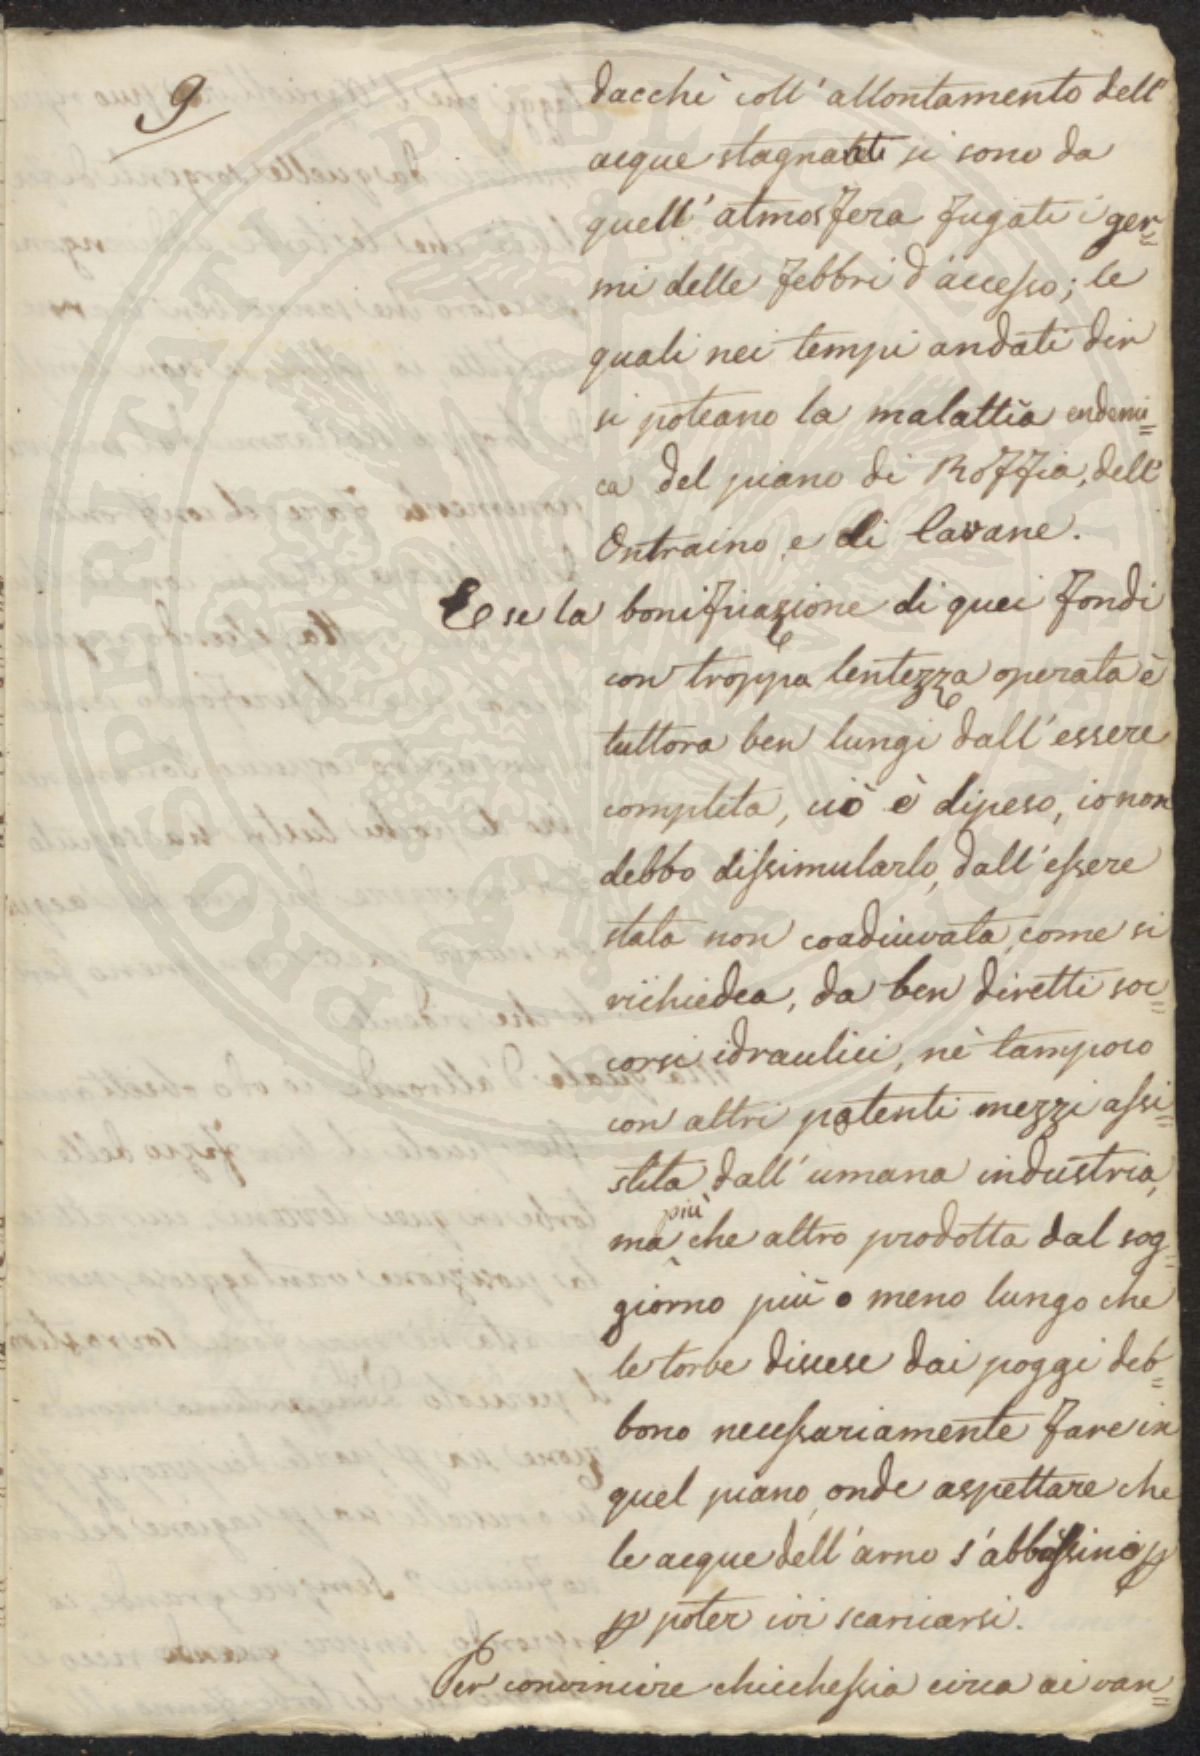 9
dacchè coll' allontamento dell'
acque stagnanti si sono da
quell' atmosfera fugati i ger=
mi delle febbri d'accesso; le
quali nei tempi andati dir
si poteano la malattia endemi=
ca del piano di Roffia, dell'
Ontraino e di Cavane.
E se la bonificazione di quei fondi
con troppa lentezza operata è
tuttora ben lungi dall' essere
completa, ciò è dipeso, io non
debbo dissimularlo, dall' essere
stata non coadiuvata, come si
richiedea, da ben diretti soc=
corsi idraulici, nè tampoco
con altri potenti mezzi assi=
stita dall' umana industria,
ma più che altro prodotta dal sog=
giorno più o meno lungo che
le torbe discese dai poggi deb=
bono necessariamente fare in
quel piano, onde aspettare che
le acque dell' arno s'abbassino p
p poter ivi scaricarsi.
Per convincere chicchessia circa ai van=
PROSPERITATI PUBLICAE